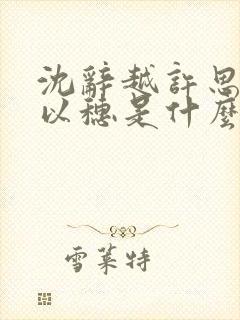 沈辭越許思
以穗是什麼
雪萊特